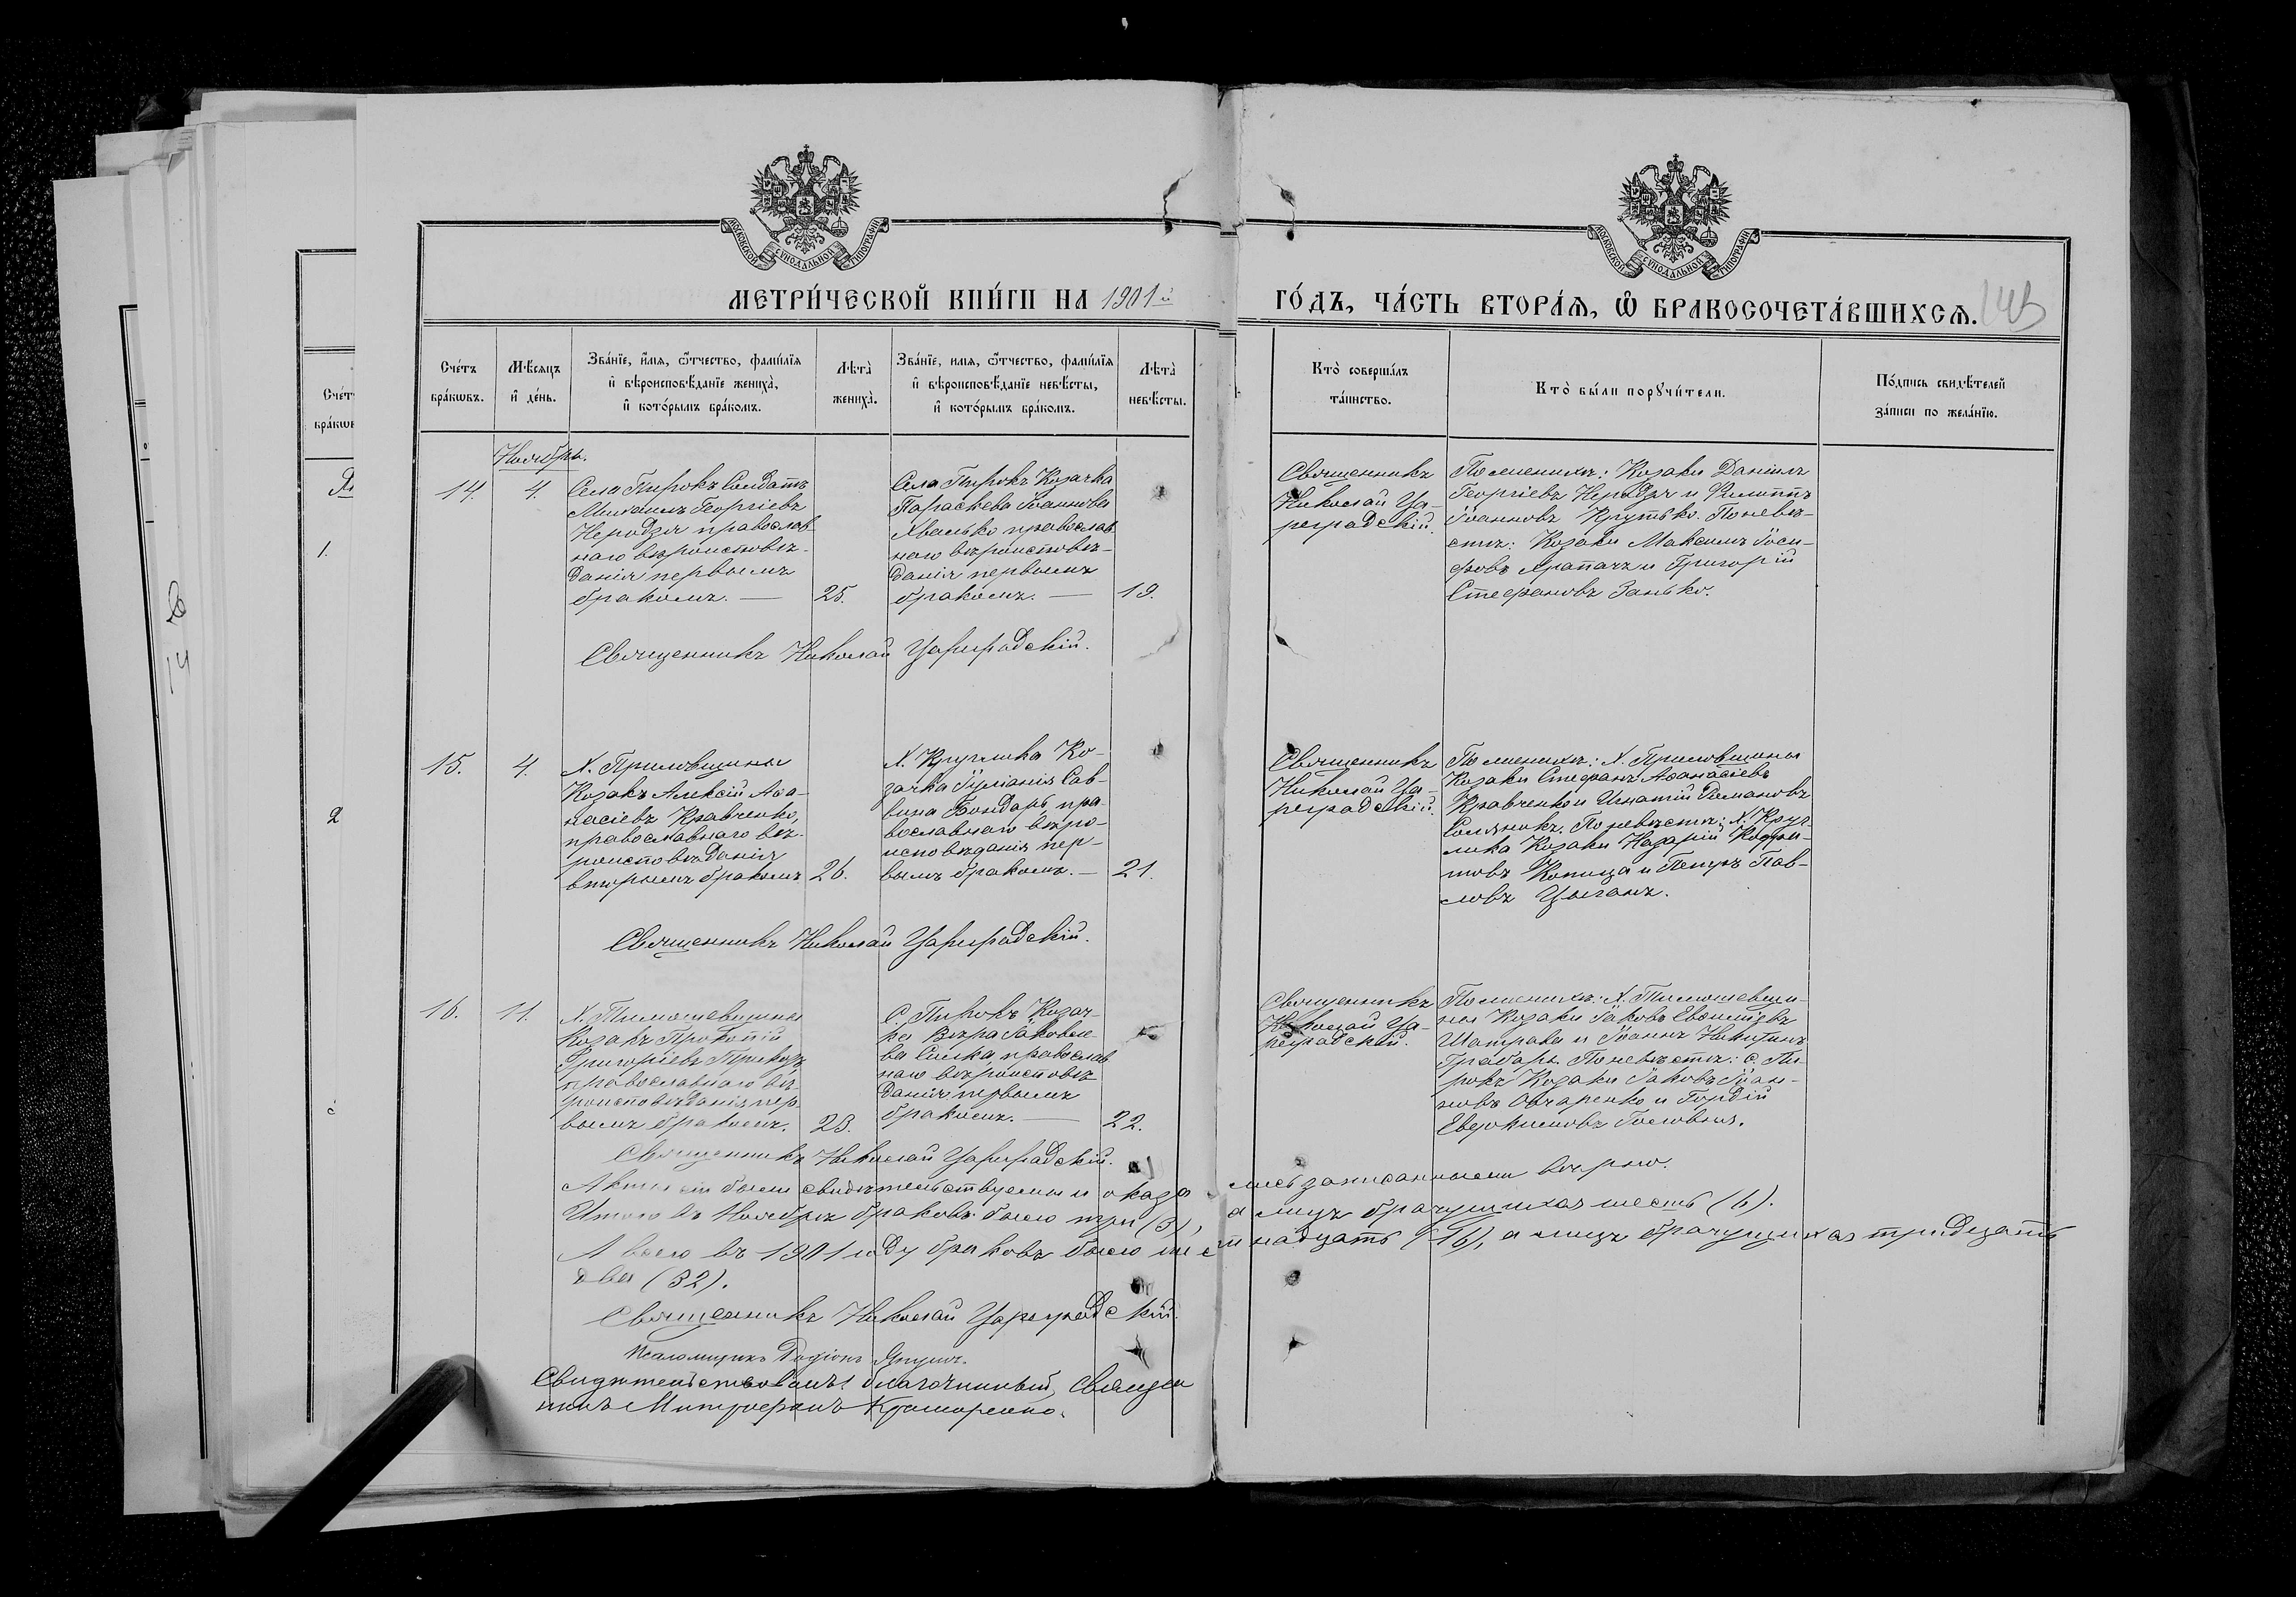 МОСКОВСКОЙ СѴНОДАЛЬНОЙ ТИПОГРАФІИ
МОСКОВСКОЙ СѴНОДАЛЬНОЙ ТИПОГРАФІИ
МЕТРИ́ЧЕСКОЙ КНИ́ГИ НА 1901й
ГО́ДЪ, ЧА́СТЬ ВТОРА́Ѧ, Ѡ҆ БРАКОСОЧЕТА́ВШИХСѦ.
Сче́тъ
бра́кѡвъ.
Мѣ́сяцъ
и҆ де́нь.
Зва́нїе, и҆́мя, ѻ҆́тчество, фами́лїя
и҆ вѣроисповѣ́данїе жениха̀,
и҆ кото́рымъ бра́комъ.
Лѣта̀
жениха̀.
Зва́нїе, и҆мя, ѻ҆́тчество, фами́лїя
и҆ вѣроисповѣ́данїе невѣ́сты,
и҆ кото́рымъ бра́комъ.
Лѣта̀
невѣ́сты.
Кто̀ соверша́лъ
та́инство.
Кто̀ бы́ли порꙋчи́тели.
По́дпись свидѣ́телей
за́писи по жела́нїю.
Сче́т
бра́кѡв
1.
2
Ноябрь.
14.
4.
Села Пирокъ Солдатъ
Михаилъ Георгіевъ
Неродзя православ-
наго вѣроисповѣ-
данія первымъ
бракомъ. —
25.
Села Пирокъ Козачка
Параскева Іоаннова
Хвалько православ-
наго вѣроисповѣ-
данія первымъ
бракомъ. —
19.
Священникъ
Николай Ца-
реградскій.
По женихѣ: Козаки Даніилъ
Георгіевъ Неродзя и Филиппъ
Іоанновъ Крутько. По невѣ-
стѣ: Козаки Максимъ Іоси-
фовъ Храпачъ и Григорій
Стефановъ Занько.
Священникъ Николай Цареградскій.
15.
4.
Х. Приловщины
Козакъ Алексій Аѳа-
насіевъ Кравченко,
православнаго вѣ-
роисповѣданія
вторымъ бракомъ
26.
Х. Круглика Ко-
зачка Іуліанія Сав-
вина Бондарь пра-
вославнаго вѣро-
исповѣданія пер-
вымъ бракомъ. —
21.
Священникъ
Николай Ца-
реградскій.
По женихѣ: Х. Приловщины
Козаки Стефанъ Аѳанасіевъ
Кравченко и Игнатій Романовъ
По невѣстѣ: Х. Круг-
лика Козаки Назарій
Копица и Петръ Пав-
ловъ Цыганъ.
Священникъ Николай Цареградскій.
16.
11.
Х. Тимошевщины
Козакъ Прокопій
Григоріевъ
православнаго вѣ-
роисповѣданія пер-
вымъ бракомъ.
23.
С. Пирокъ Козач-
ка Вѣра Іаковле-
ва православ-
наго вѣроисповѣ-
данія первымъ
бракомъ. —
22.
Священникъ
Николай Ца-
реградскій.
По женихѣ: Х. Тимошевщи-
ны Козаки Іаковъ Евѳиміевъ
Шатрава и Іоаннъ Никитинъ
Грабарь. По невѣстѣ: С. Пи-
рокъ Козаки Іаковъ Іоан-
новъ Овчаренко и Гордій
Евфимовъ Головня.
Священникъ Николай Цареградскій.
Акты сіи были свидѣтельствуемы и оказались записанными вѣрно.
Итого въ Ноябрѣ браковъ было три (3), а лицъ брачущихся шесть (6).
А всего въ 1901 году браковъ было шестнадцать (16), а лицъ брачущихся тридцать
два (32).
Священникъ Николай Цареградскій.
Псаломщикъ
Свидѣтельствовалъ: благочинный, Священ
никъ Митрофанъ Крамаренко.